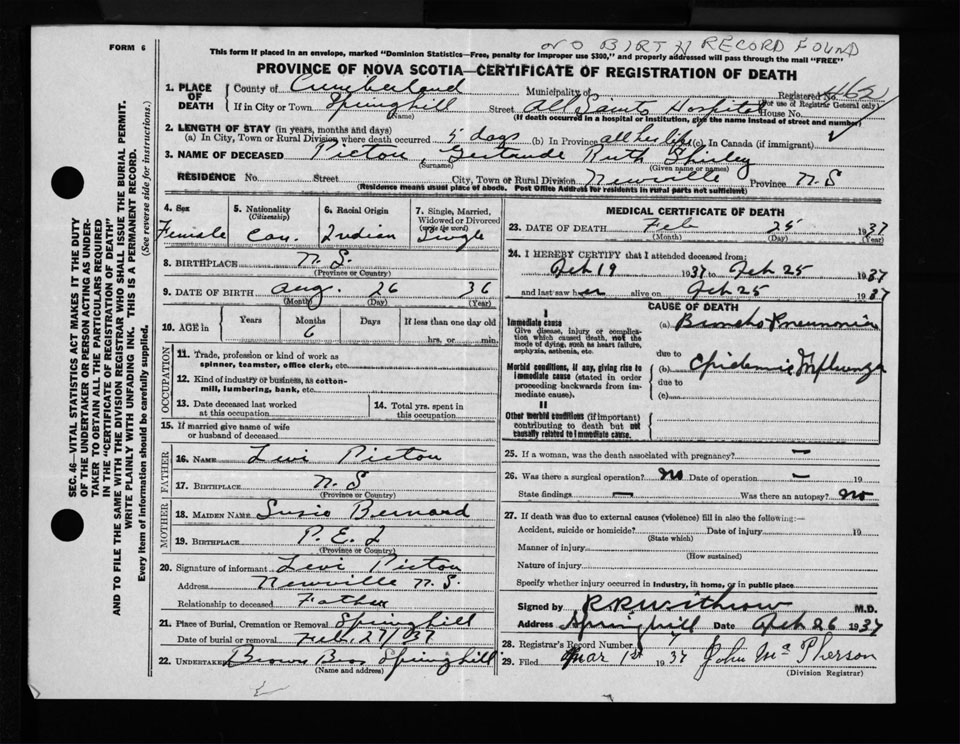 NO BIRTH RECORD FOUND
FORM 6
This form if placed in an envelope, marked "Dominion Statistics—Free, penalty for improper use $300," and properly addressed will pass through the mail "FREE"
PROVINCE OF NOVA SCOTIA—CERTIFICATE OF REGISTRATION OF DEATH
SEC. 46—VITAL STATISTICS ACT MAKES IT THE DUTY
OF THE UNDERTAKER OR PERSON ACTING AS UNDER-
TAKER TO OBTAIN ALL THE PARTICULARS REQUIRED
IN THE "CERTIFICATE OF REGISTRATION OF DEATH"
AND TO FILE THE SAME WITH THE DIVISION REGISTRAR WHO SHALL ISSUE THE BURIAL PERMIT.
WRITE PLAINLY WITH UNFADING INK. THIS IS A PERMANENT RECORD.
Every item of information should be carefully supplied. (See reverse side for instructions.)
1. PLACE OF DEATH
County of Cumberland Municipality of Registered No. 462
(For use of Registrar General only)
If in City or Town Springhill Street All Saints Hospital House No.
(Name) (If death occurred in a hospital or institution, give the name instead of street and number)
2. LENGTH OF STAY (in years, months and days)
(a) In City, Town or Rural Division where death occurred 5 days (b) In Province all her life (c). In Canada (if immigrant)
3. NAME OF DECEASED Picton, Gertrude Ruth Shirley
(Surname) (Given name or names)
RESIDENCE No. Street City, Town or Rural Division Newville Province N.S
(Residence means usual place of abode. Post Office Address for residents in rural parts not sufficient)
4. Sex Female
5. Nationality (Citizenship) Can.
6. Racial Origin Indian
7. Single, Married, Widowed or Divorced (write the word) Single
8. BIRTHPLACE N.S.
(Province or Country)
9. DATE OF BIRTH Aug. 26 36
(Month) (Day) (Year)
10. AGE in Years Months 6 Days If less than one day old hrs. or min.
OCCUPATION
11. Trade, profession or kind of work as spinner, teamster, office clerk, etc.
12. Kind of industry or business, as cotton-mill, lumbering, bank, etc.
13. Date deceased last worked at this occupation
14. Total yrs. spent in this occupation
15. If married give name of wife or husband of deceased
FATHER
16. NAME Levi Picton
17. BIRTHPLACE N.S
(Province or Country)
MOTHER
18. MAIDEN NAME Susie Bernard
19. BIRTHPLACE P.E.I
(Province or Country)
20. Signature of informant Levi Picton
Address Newville N.S.
Relationship to deceased Father
21. Place of Burial, Cremation or Removal Springhill
Date of burial or removal Feb. 27/37
22. UNDERTAKER Brown Bros Springhill
(Name and address)
MEDICAL CERTIFICATE OF DEATH
23. DATE OF DEATH Feb 25 1937
(Month) (Day) (Year)
24. I HEREBY CERTIFY that I attended deceased from:
Feb 19 1937 to Feb 25 1937
and last saw her alive on Feb 25 1937
CAUSE OF DEATH
I
Immediate cause
Give disease, injury or complication which caused death, not the mode of dying, such as heart failure, asphyxia, asthenia, etc.
(a) Broncho Pneumonia
due to
Morbid conditions, if any, giving rise to immediate cause (stated in order proceeding backwards from immediate cause).
(b) Epidemic Influenza
due to
(c)
II
Other morbid conditions (if important) contributing to death but not causally related to immediate cause.
25. If a woman, was the death associated with pregnancy? —
26. Was there a surgical operation? No Date of operation — 19
State findings — Was there an autopsy? No
27. If death was due to external causes (violence) fill in also the following:—
Accident, suicide or homicide? Date of injury 19
(State which)
Manner of injury
(How sustained)
Nature of injury
Specify whether injury occurred in industry, in home, or in public place
Signed by R R Withrow M.D.
Address Springhill Date Feb 26 1937
28. Registrar's Record Number 7
29. Filed Mar 1st 1937 John McPherson
(Division Registrar)